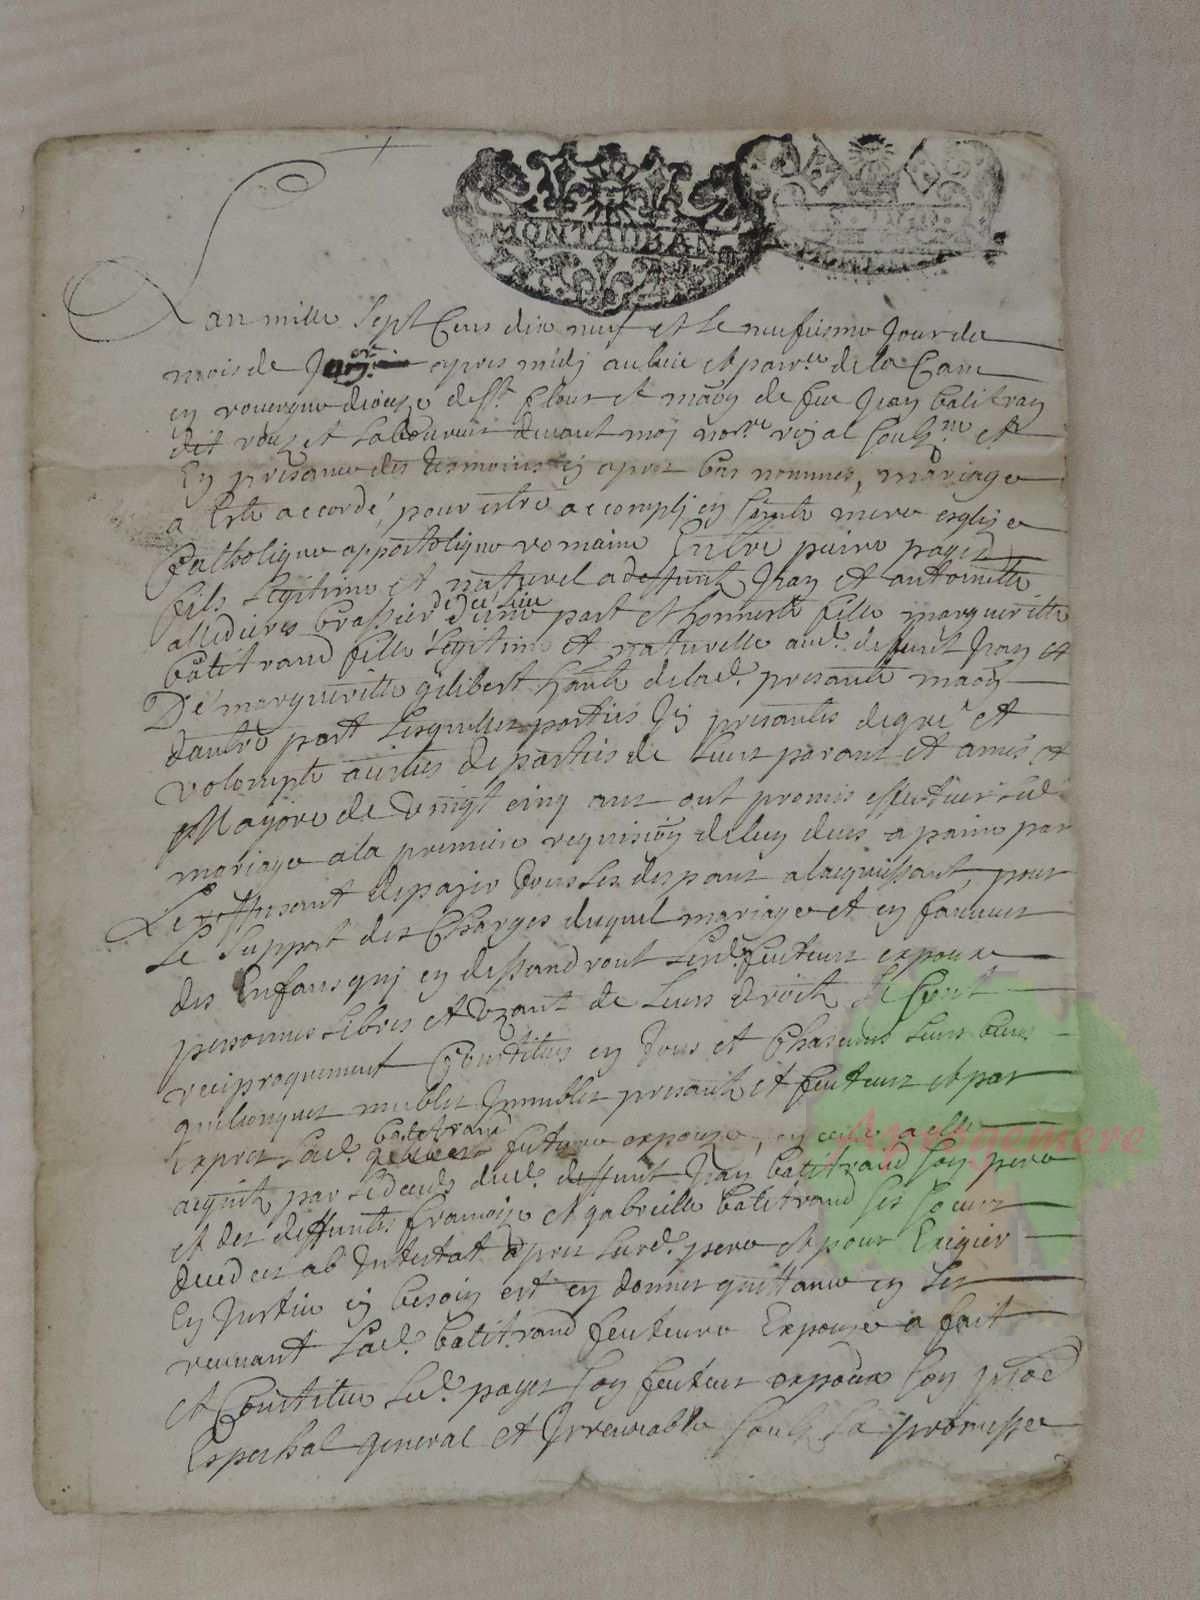 MONTAUBAN
Lan mille Sept Cens dix neuf et Le neufiesme Jour du
mois de apres midj au lieu et parr.e de la Cam
en rouergue dioceze de St. flour et maōn de feu Jean batitran
dit roux et Laboureur devant moj no.re rojal soubz.ne et
En presance des tesmoins cy apres bas nommes, mariage
a Este accordé, pour estre accomplj en saincte mere esglize
Catholique appostolique romaine Entre peire pages
fils Legitime et naturel a deffunt Jean et antoinette
alledieres brassier de ce lieu d'une part et honneste fille margueritte
batitrand fille Legitime et naturelle aud. deffunt Jean et
De margueritte gilibert habt. de lad. presante maōn
dautre part Lesquelles parties Icy presantes de gré et
volompte assistes de parties de Leurs parans et amis et
Majore de vingt cinq ans ont promis effectuer Led.
mariage a la premiere requision de luy deus a paine par
Le reffusant de pajer tous les despans a lacquissant, pour
Le support des Charges duquel mariage et en faveur
des Enfans quj en dessandront Lesd. futeurs expoux
personnes Libres et Uzant de Leurs droitz Se sont
reciproquement Constitues en tous et Chascuns Leurs biens
quelconques meubles Immubles presants et futeurs et par
Expres Lad. batitrand future expouze, en ceux a elle
acquitz par Le deces dud. deffunt Jean batitrand son pere
et des deffuntes francoise et gabrielle batitrand ses soeurs
decedees ab Intestat apres Leurd. pere et pour Exigier
En Justice sy besoin est en donner quittance en Les
recevant Lad. batitrand futeure Expouze a fait
et Constitue Led. pages son futeur expoux son
Expecial general et Irrevocable soubz La promesse
Apresnemere